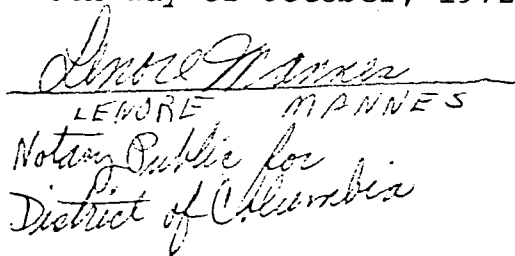 day of October, 197
Lenore Mannes
LENORE MANNES
Notary Public for
District of Columbia